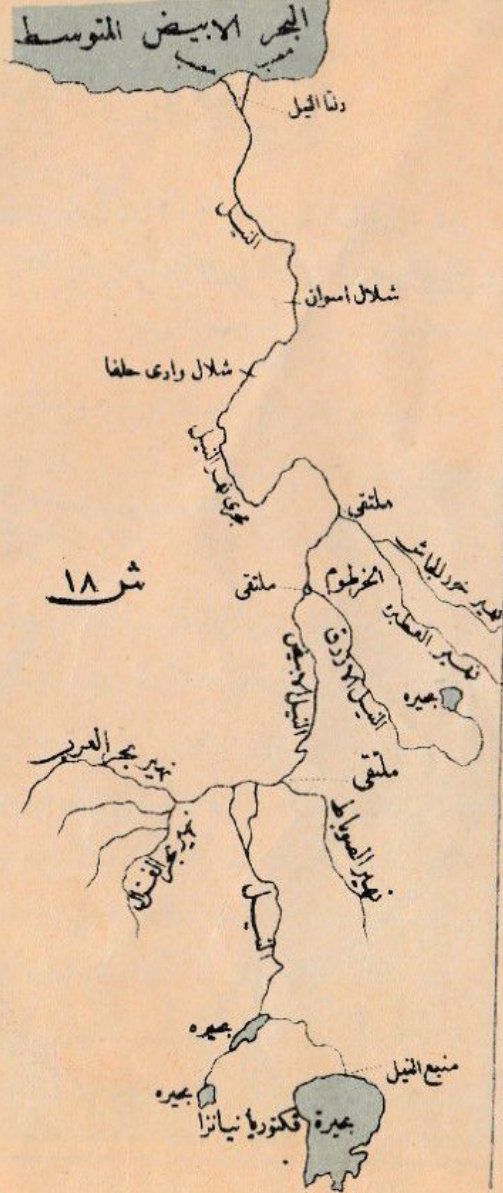 البحر الابيض المتوسط
مصب
مصب
دلتا النيل
النيل
شلال اسوان
شلال وادى حلفا
مجرى نهر النيل
ملتقى
نهير خور الجاش
نهير العطبره
الخرطوم
ملتقى
ش ١٨
النيل الازرق
النيل الابيض
بحيره
نهير بحر العرب
ملتقى
نهير بحر الغزال
نهير الصوباط
النيل
بحيره
منبع النيل
بحيره
بحيرة فكتوريا نيانزا